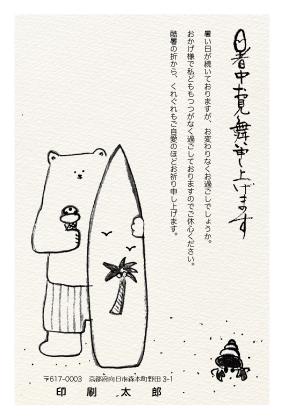 暑中お見舞い申し上げます
暑い日が続いておりますが、お変わりなくお過ごしでしょうか。
おかげ様で私どももつつがなく過ごしておりますのでご休心ください。
酷暑の折から、くれぐれもご自愛のほどお祈り申し上げます。
〒617-0003 京都府向日市森本町野田 3-1
印刷太郎